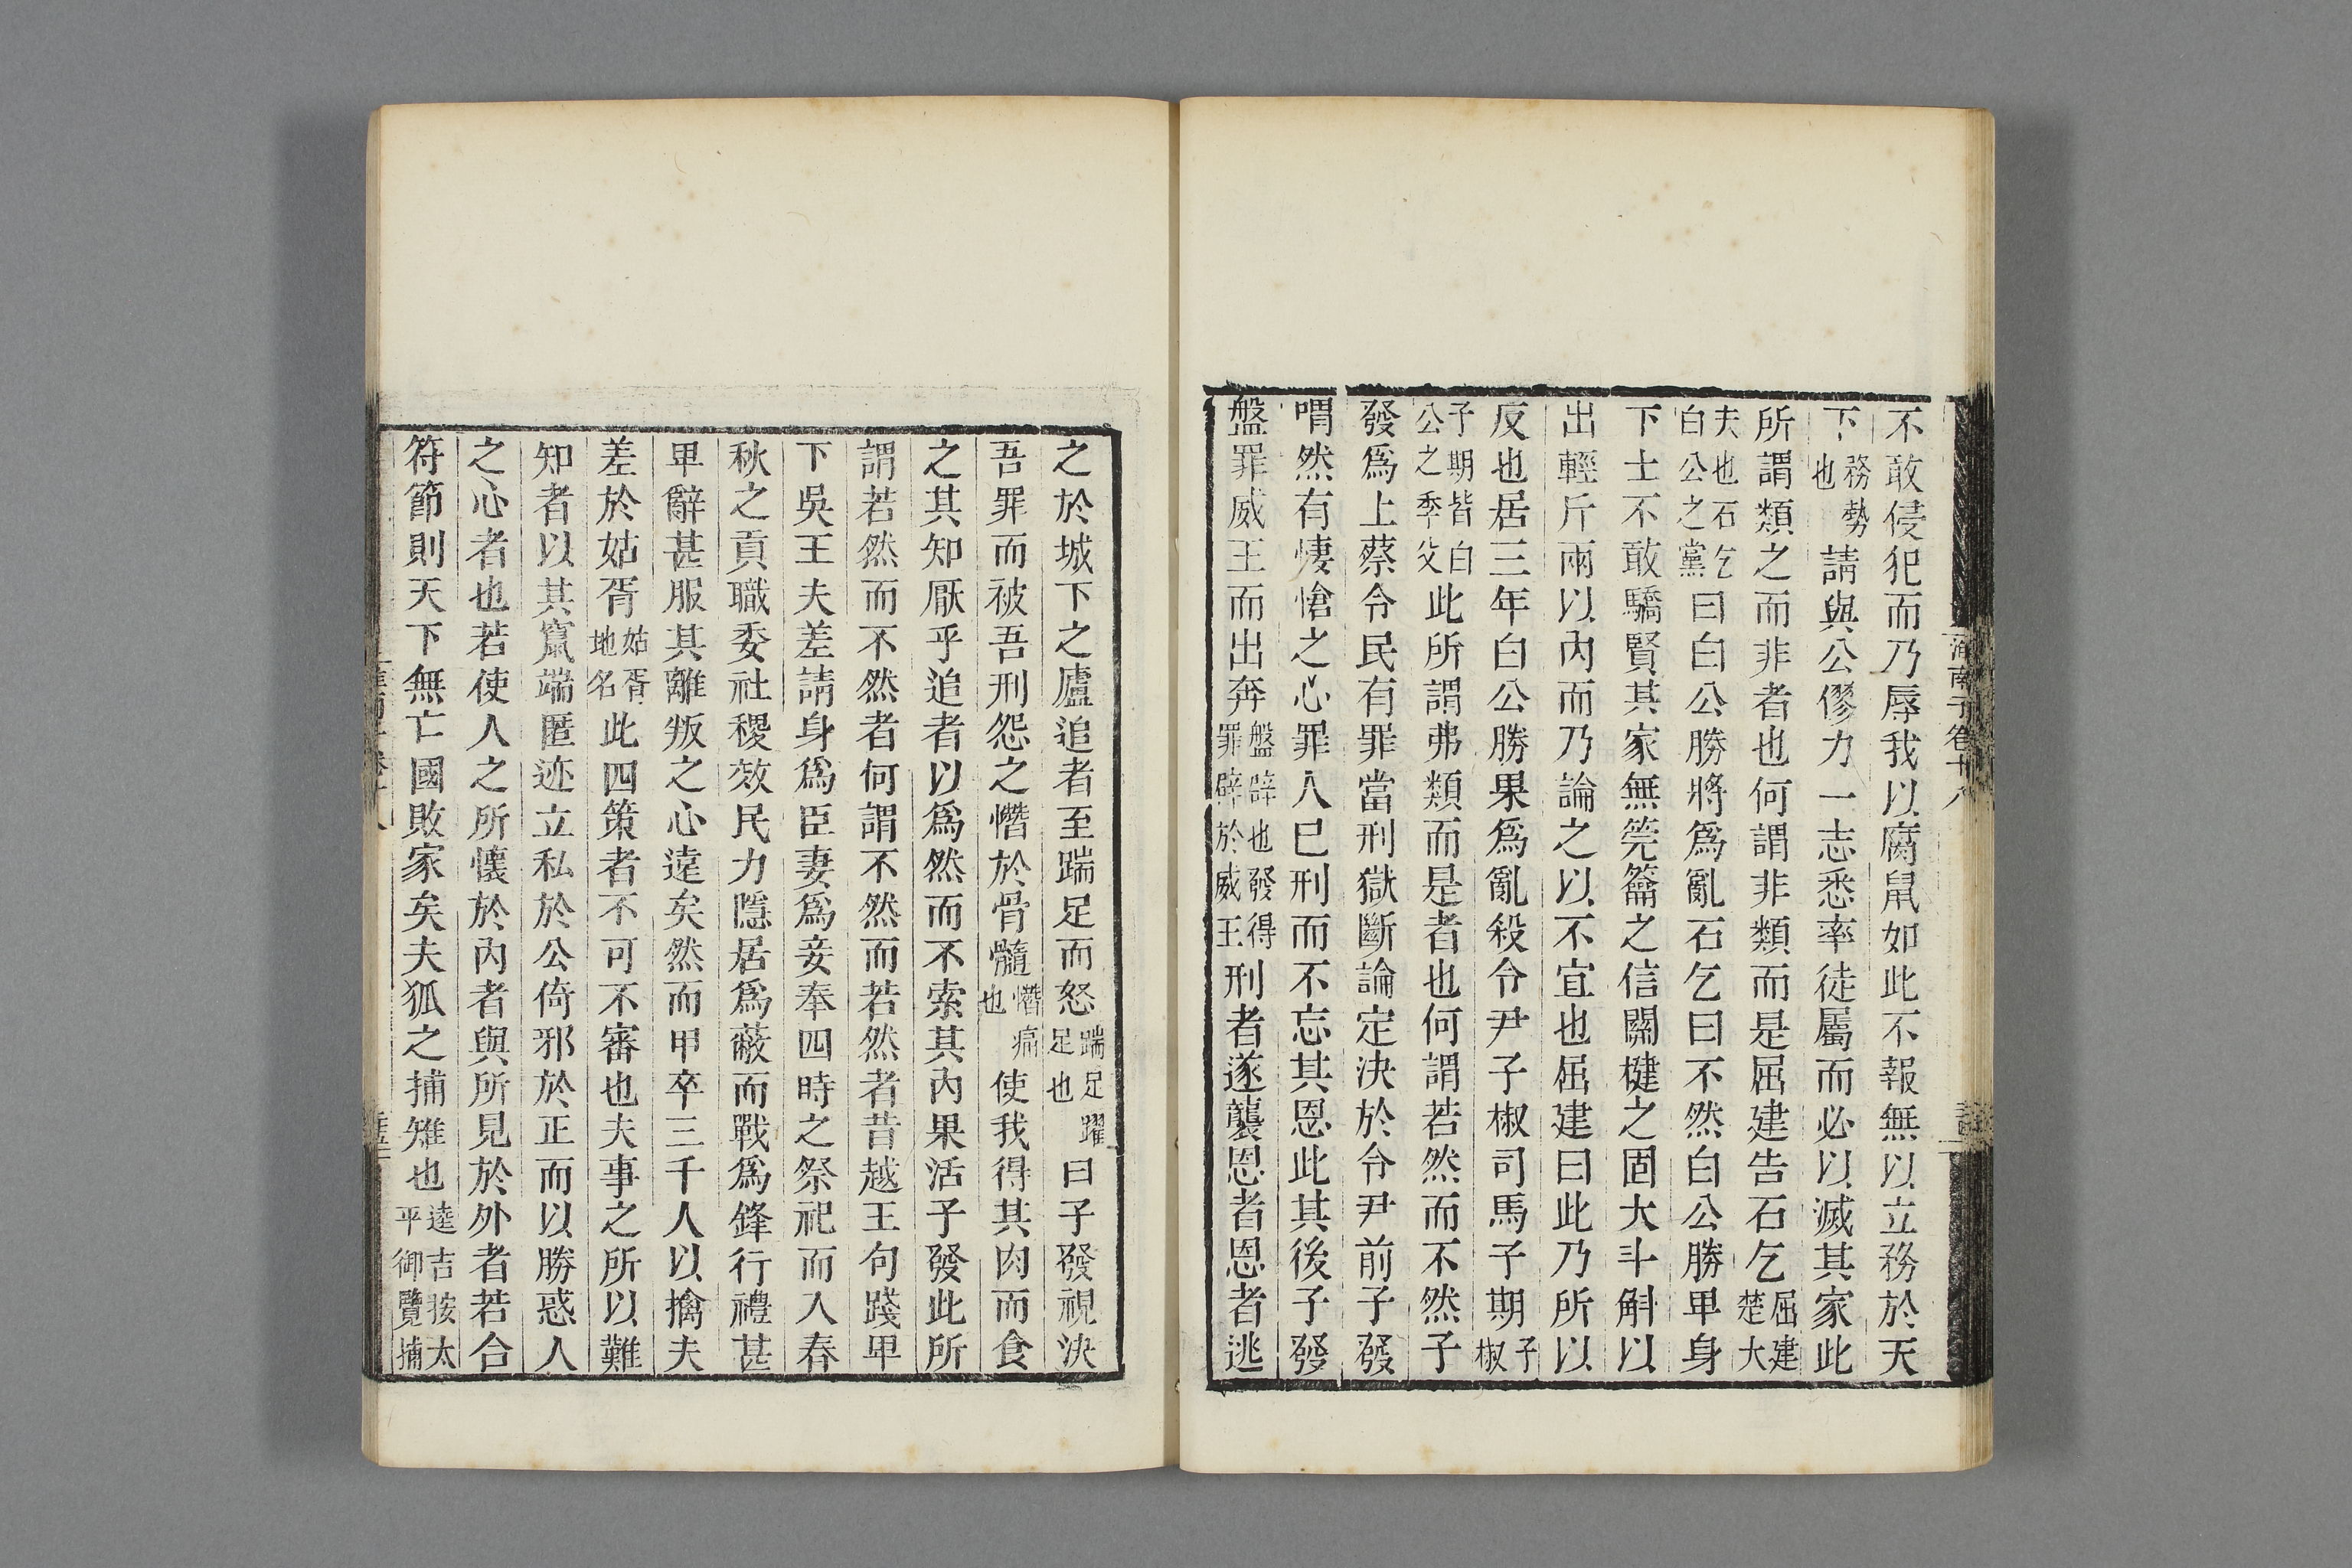 不敢侵犯而乃辱我以腐鼠如此不報無以立務於天
下務勢也請與公僇力一志悉率徒屬而必以滅其家此
所謂類之而非者也何謂非類而是屈建告石乞屈建楚大
夫也石乞白公之黨曰白公勝將爲亂石乞曰不然白公勝卑身
下士不敢驕賢其家無筦籥之信關楗之固大斗斛以
出輕斤兩以內而乃論之以不宜也屈建曰此乃所以
反也居三年白公勝果爲亂殺令尹子椒司馬子期子椒
子期皆白公之季父此所謂弗類而是者也何謂若然而不然子
發爲上蔡令民有罪當刑獄斷論定決於令尹前子發
喟然有悽愴之心罪人已刑而不忘其恩此其後子發
盤罪威王而出奔盤辟也發得罪辟於威王刑者遂襲恩者恩者逃
淮南子卷十八
之於城下之廬追者至踹足而怒踹足躍足也曰子發視決
吾罪而被吾刑怨之憯於骨髓憯痛也使我得其肉而食
之其知厭乎追者以爲然而不索其內果活子發此所
謂若然而不然者何謂不然而若然者昔越王句踐卑
下吳王夫差請身爲臣妻爲妾奉四時之祭祀而入春
秋之貢職委社稷效民力隱居爲蔽而戰爲鋒行禮甚
卑辭甚服其離叛之心遠矣然而甲卒三千人以擒夫
差於姑胥姑胥地名此四策者不可不審也夫事之所以難
知者以其竄端匿迹立私於公倚邪於正而以勝惑人
之心者也若使人之所懷於內者與所見於外者若合
符節則天下無亡國敗家矣夫狐之捕雉也逵吉按太平御覽捕